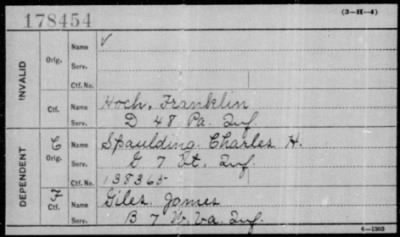 178454
(3-H-4)
INVALID
Orig.
Name √
Serv.
Ctf. No.
Ctf.
Name Hoch, Franklin
Serv. D 48 Pa. Inf
DEPENDENT
C
Orig.
Name Spaulding Charles H.
Serv. G 7 Vt. Inf.
Ctf. No. 138365
Ctf.
Name Giles James
Serv. B 7 W. Va. Inf.
6-1303